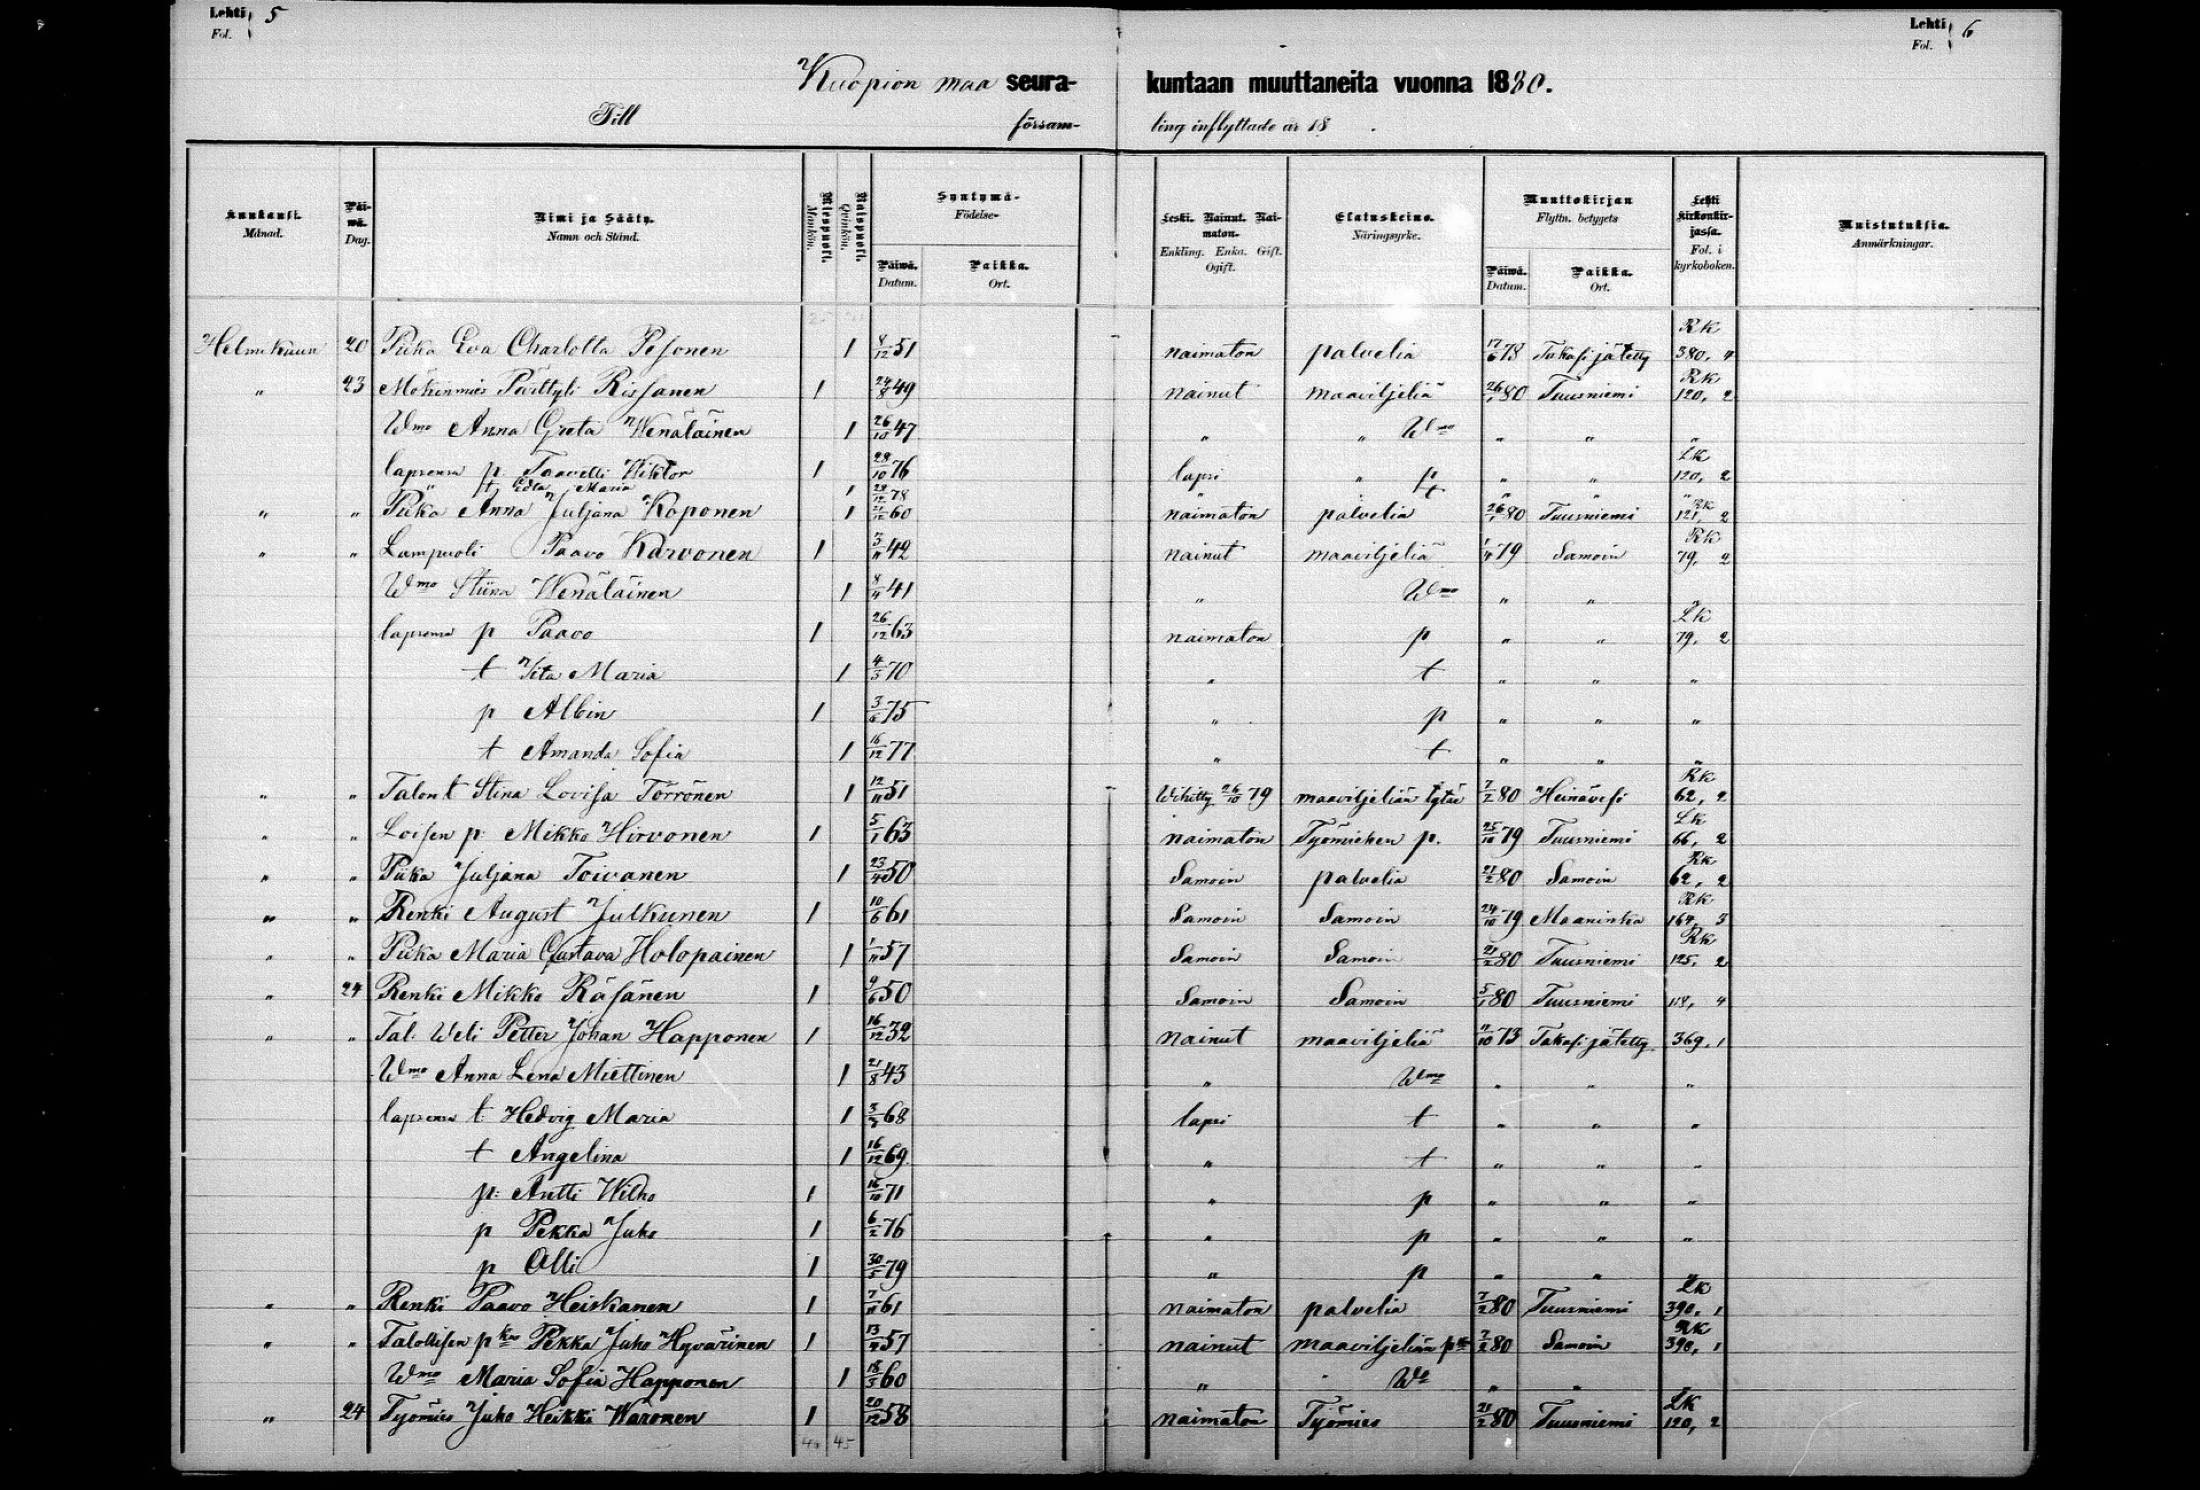 Lehti 5 Lehti 6
Fol. Fol.
Kuopion maa seura- kuntaan muuttaneita vuonna 1880.
Till försam- ling inflyttade år 18 .
Kuukausi. Månad. Päi-wä. Dag. Nimi ja Sääty. Namn och Stånd. Miespuoli. Mankön. Naispuoli. Qvinkön. Syntymä- Födelse- Päiwä. Datum. Paikka. Ort. Leski. Nainut. Nai-maton. Enkling. Enka. Gift. Ogift. Elatuskeino. Näringsyrke. Muuttokirjan Flyttn. betygets Päiwä. Datum. Paikka. Ort. Lehti kirkonkir-jassa. Fol. i kyrkoboken. Muistutuksia. Anmärkningar.
Helmikuun 20 Piika Eva Charlotta Pesonen 1 8/12 51 naimaton palvelia 17/6 78 Takasi jätetty Rk 380, 4
" 23 Mökinmies Pärttyli Rissanen 1 24/8 49 nainut maaviljeliä 26/1 80 Tuusniemi Rk 120, 2
Wmo Anna Greta Wenäläinen 1 26/10 47 " " Wmo " " "
lapsensa p: Taavetti Wiktor 1 28/10 76 lapsi " p " " Lk 120, 2
" t Edla Maria 1 29/12 78 " t " " "
" " Piika Anna Juljana Koponen 1 21/12 60 naimaton palvelia 26/1 80 Tuusniemi Rk 121, 2
" " Lampuoti Paavo Karvonen 1 3/11 42 nainut maaviljeliä 1/11 79 Samoin Rk 79, 2
Wmo Stiina Wenäläinen 1 8/4 41 " Wmo " " "
lapsensa p Paavo 1 26/12 63 naimaton p " " Lk 79, 2
t Iita Maria 1 4/5 70 " t " " "
p Albin 1 3/6 75 " p " " "
t Amanda Sofia 1 16/12 77 " t " " "
" " Talon t Stina Lovisa Törrönen 1 12/11 51 Wihitty 26/10 79 maaviljeliän tytär 7/2 80 Heinävesi Rk 62, 2
" " Loisen p: Mikko Hirvonen 1 5/1 63 naimaton Työmiehen p. 25/10 79 Tuusniemi Lk 66, 2
" " Piika Juljana Toivanen 1 23/4 50 Samoin palvelia 21/2 80 Samoin Rk 62, 2
" " Renki August Julkunen 1 10/6 61 Samoin Samoin 24/10 79 Maaninka Rk 164, 3
" " Piika Maria Gustava Holopainen 1 1/11 57 Samoin Samoin 21/2 80 Tuusniemi Rk 125, 2
" 24 Renki Mikko Räsänen 1 9/6 50 Samoin Samoin 5/1 80 Tuusniemi 118, 4
" " Tal. Weli Petter Johan Happonen 1 16/12 32 nainut maaviljeliä 11/10 73 Takasi jätetty 369, 1
Wmo Anna Lena Miettinen 1 21/8 43 " Wmo " " "
lapsensa t: Hedvig Maria 1 3/2 68 lapsi t " " "
t Angelina 1 16/12 69 " t " " "
p: Antti Wilho 1 16/10 71 " p " " "
p Pekka Juho 1 6/2 76 " p " " "
p Olli 1 30/5 79 " p " " "
" " Renki Paavo Heiskanen 1 7/11 61 naimaton palvelia 7/2 80 Tuusniemi Lk 390, 1
" " Talollisen pka Pekka Juho Hyvärinen 1 13/4 57 nainut maaviljeliän pka 7/2 80 Samoin Rk 390, 1
Wmo Maria Sofia Happonen 1 18/5 60 " Wo " " "
" 24 Työmies Juho Heikki Waronen 1 20/12 58 naimaton Työmies 21/2 80 Tuusniemi Lk 120, 2
45